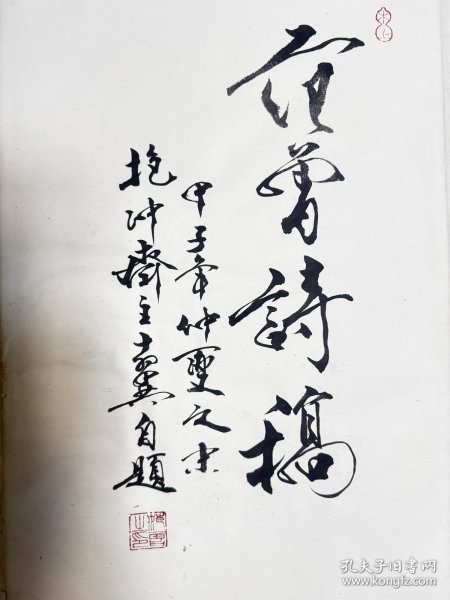 范曾詩稿
甲子年仲夏之末
抱冲齋主十翼自題
孔夫子旧书网
www.kongfz.com